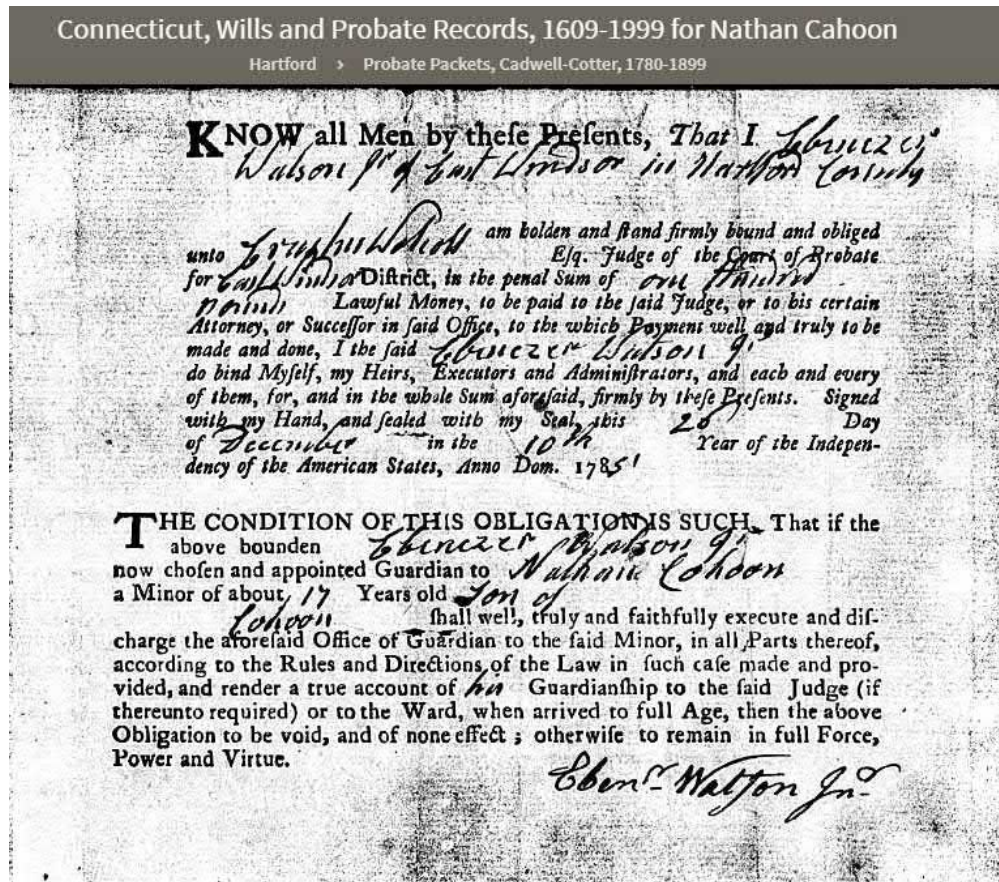 Connecticut, Wills and Probate Records, 1609-1999 for Nathan Cahoon
Hartford › Probate Packets, Cadwell-Cotter, 1780-1899
KNOW all Men by theſe Preſents, That I Ebenezer
Watson Jr of East Windsor in Hartford County
am holden and ſtand firmly bound and obliged
unto Erastus Wolcott Eſq. Judge of the Court of Probate
for East Windsor Diſtrict, in the penal Sum of one Hundred
pounds Lawful Money, to be paid to the ſaid Judge, or to his certain
Attorney, or Succeſſor in ſaid Office, to the which Payment well and truly to be
made and done, I the ſaid Ebenezer Watson Jr
do bind Myſelf, my Heirs, Executors and Adminiſtrators, and each and every
of them, for, and in the whole Sum aforeſaid, firmly by theſe Preſents. Signed
with my Hand, and ſealed with my Seal, this 26 Day
of December in the 10th Year of the Indepen-
dency of the American States, Anno Dom. 1785
THE CONDITION OF THIS OBLIGATION IS SUCH, That if the
above bounden Ebenezer Watson Jr
now choſen and appointed Guardian to Nathan Cohoon
a Minor of about 17 Years old Son of
Cohoon ſhall well, truly and faithfully execute and diſ-
charge the aforeſaid Office of Guardian to the ſaid Minor, in all Parts thereof,
according to the Rules and Directions of the Law in ſuch caſe made and pro-
vided, and render a true account of his Guardianſhip to the ſaid Judge (if
thereunto required) or to the Ward, when arrived to full Age, then the above
Obligation to be void, and of none effect ; otherwiſe to remain in full Force,
Power and Virtue.
Ebenr Watson Jnr